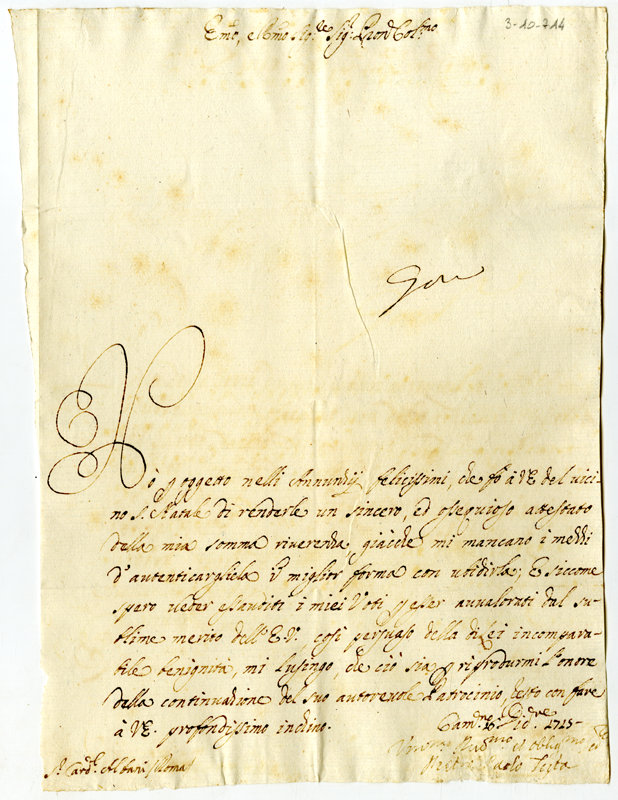 Em̃o, e Rm̃o Sig.re Sig.r Pron̄ Col.mo
3-10-714
Hò p oggetto nelli Annunzij felicissimi, che fò à V.E. del vici-
no S. Natale di renderle un sincero, ed ossequioso attestato
della mia somma riverenza, giacche mi mancano i mezzi
d'autenticargliela ī miglior forma con ubidirla; E siccome
spero veder esauditi i miei Voti p esser avvalorati dal su-
blime merito dell'E.V. così persuaso della di Lei incompara-
bile benignità, mi lusingo, che ciò sia p riprodurmi l'onore
della continuazione del suo autorevole Patrocinio, e resto con fare
à V.E. profondissimo inchino.
Xbre 1715
S.r Card.l Albani Roma